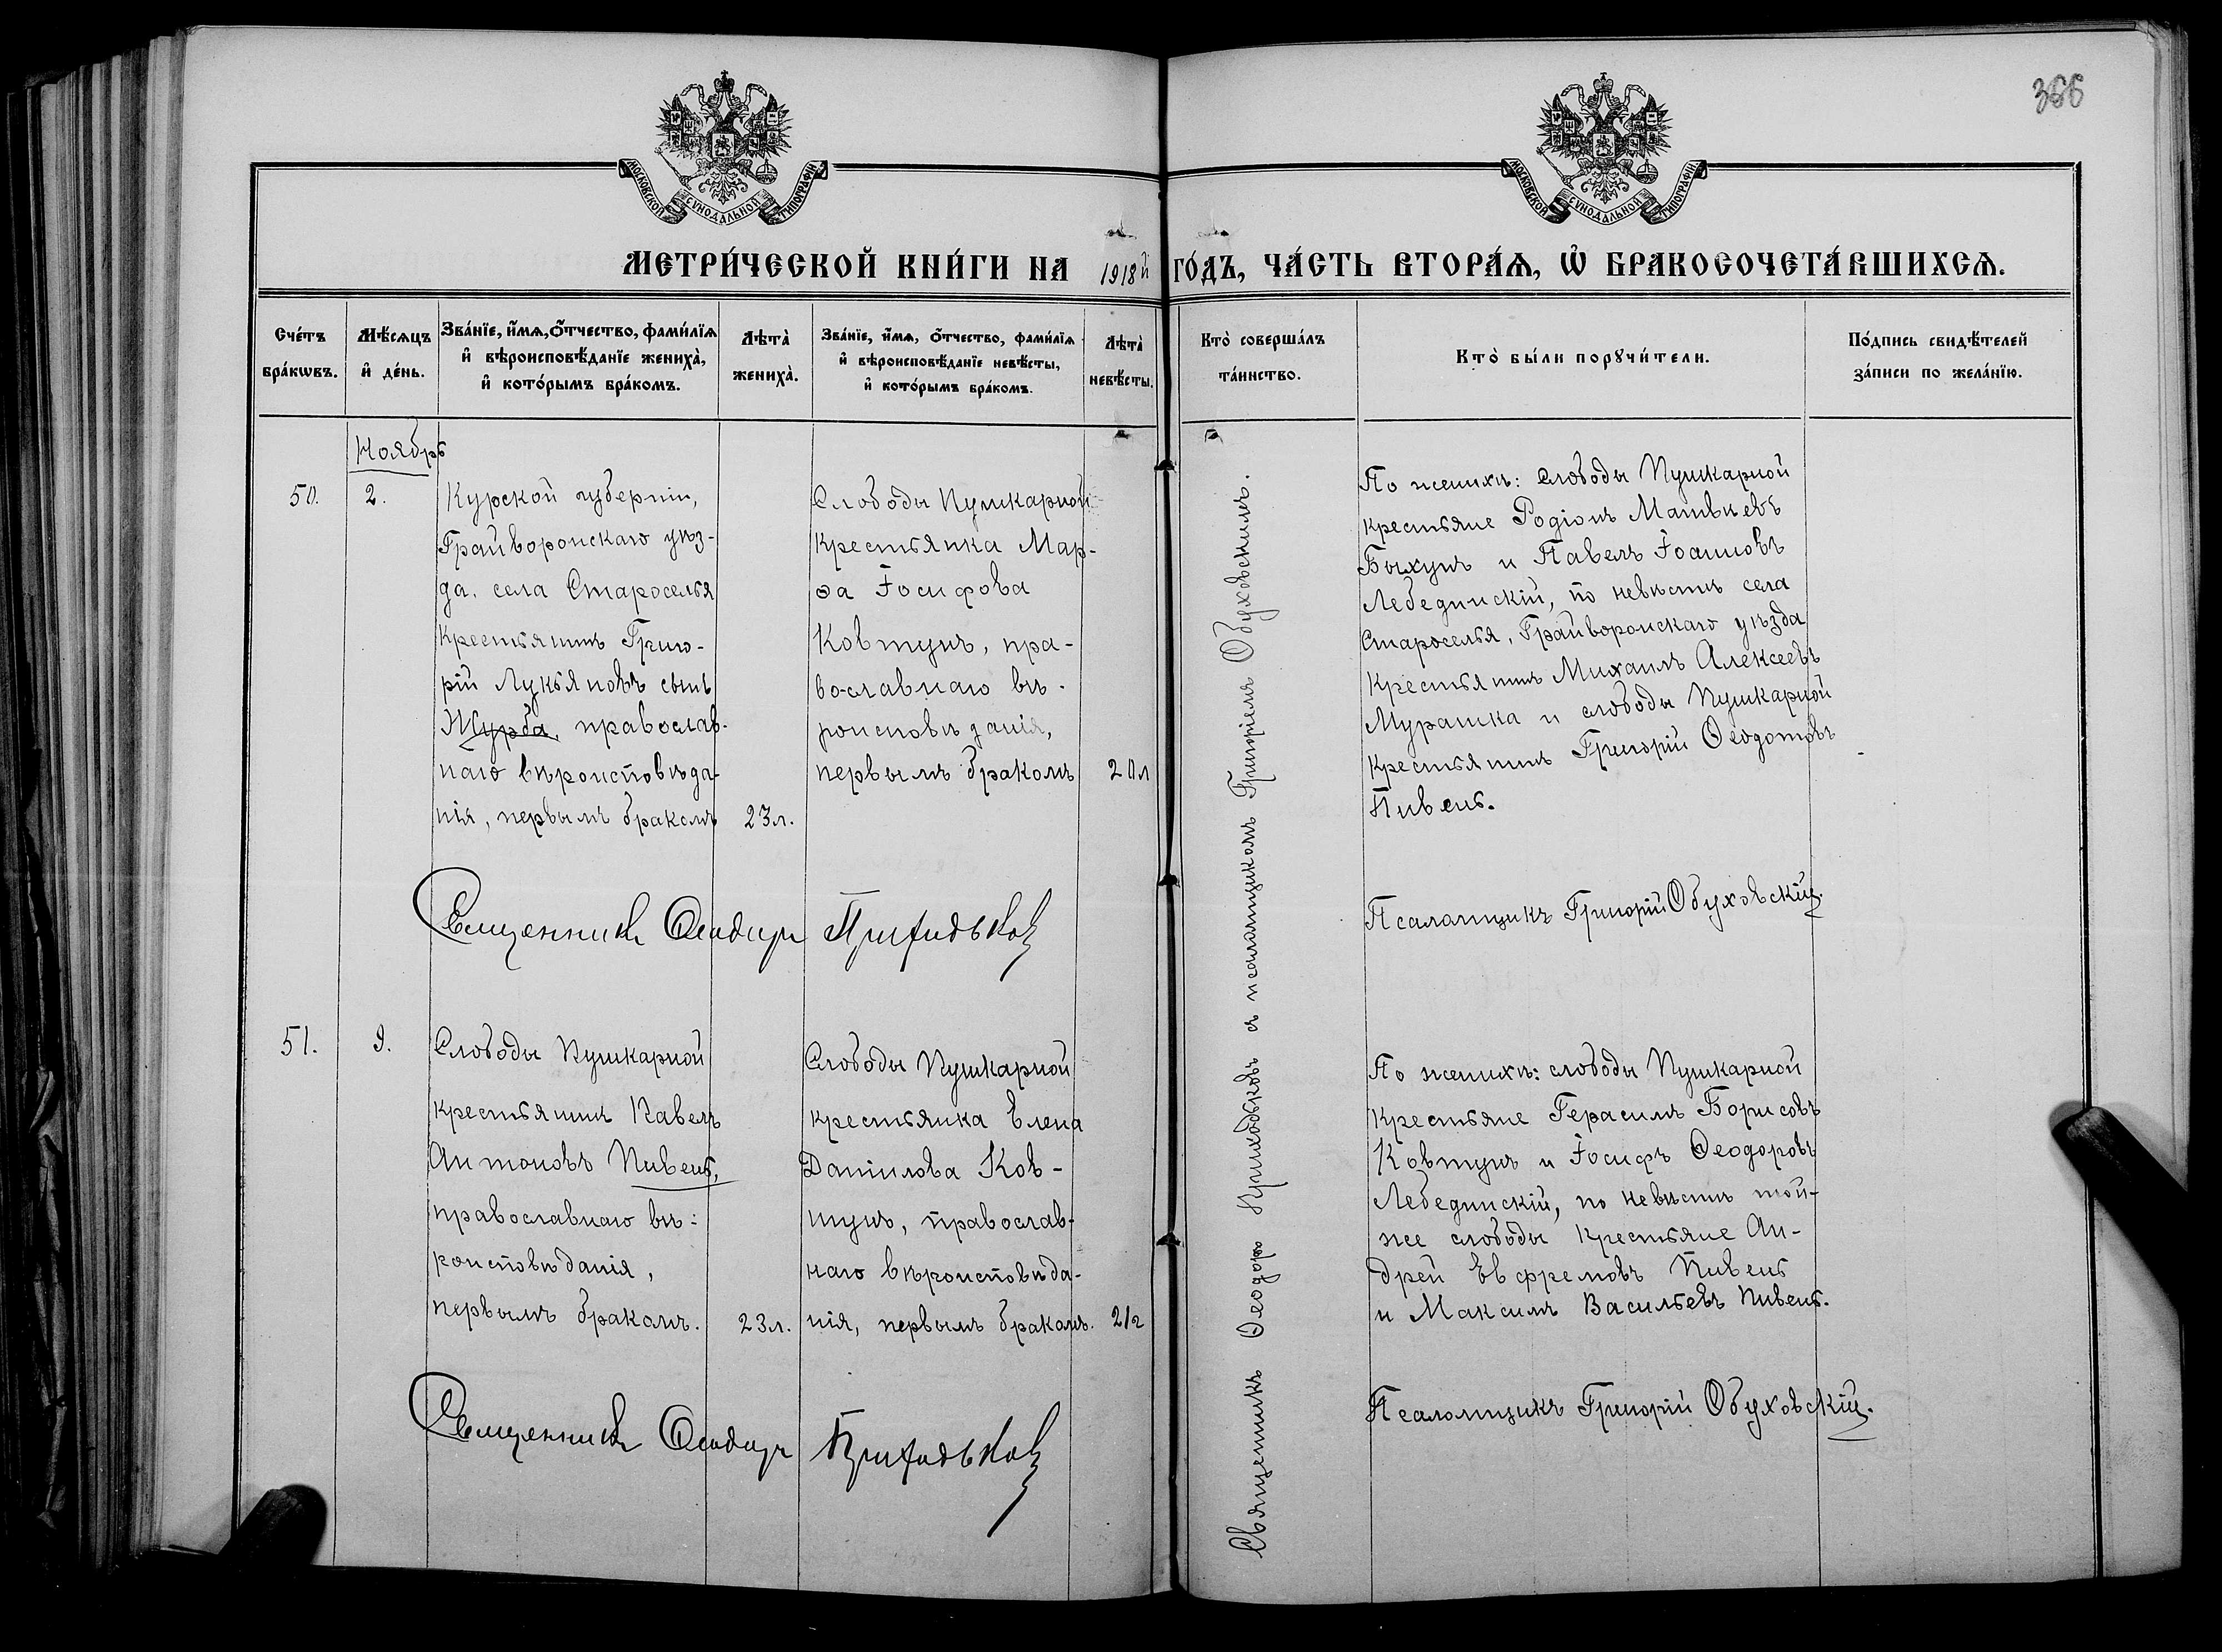 366
МОСКОВСКОЙ СѴНОДАЛЬНОЙ ТИПОГРАФІИ
МОСКОВСКОЙ СѴНОДАЛЬНОЙ ТИПОГРАФІИ
МЕТРИ́ЧЕСКОЙ КНИ́ГИ НА 1918й ГО́ДЪ, ЧА́СТЬ ВТОРА́Ѧ, Ѡ҆ БРАКОСОЧЕТА́ВШИХСѦ.
Сче́тъ
бра́кѡвъ.
Мѣ́сѧцъ
и҆ де́нь.
Зва́нїе, и҆́мѧ, ѻ҆́тчество, фами́лїѧ
и҆ вѣроисповѣ́данїе жениха̀,
и҆ кото́рымъ бра́комъ.
Лѣта̀
жениха̀.
Зва́нїе, и҆́мѧ, ѻ҆́тчество, фами́лїѧ
и҆ вѣроисповѣ́данїе невѣ́сты,
и҆ кото́рымъ бра́комъ.
Лѣта̀
невѣ́сты.
Кто̀ соверша́лъ
та́инство.
Кто̀ бы́ли порꙋчи́тели.
По́дпись свидѣ́телей
за́писи по жела́нїю.
Ноябрь
50.
2.
Курской губерніи,
Грайворонскаго уѣз-
да, села Староселья
крестьянинъ Григо-
рій Лукьяновъ сынъ
Журба, православ-
наго вѣроисповѣда-
нія, первымъ бракомъ
23л.
Слободы Пушкарной
крестьянка Мар-
ѳа Іосифова
Ковтунъ, пра-
вославнаго вѣ-
роисповѣданія,
первымъ бракомъ
20л
Священникъ Ѳеодоръ Приходьковъ
По женихѣ: слободы Пушкарной
крестьяне Родіонъ Матвѣевъ
Быхунъ и Павелъ Іоанновъ
Лебединскій, по невѣстѣ села
Староселья, Грайворонскаго уѣзда
крестьянинъ Михаилъ Алексеевъ
Мурашка и слободы Пушкарной
крестьянинъ Григорій Ѳеодотовъ
Пивень.
Псаломщикъ Григорій Обуховскій.
51.
9.
Слободы Пушкарной
крестьянинъ Павелъ
Антоновъ Пивень,
православнаго вѣ-
роисповѣданія,
первымъ бракомъ.
23л.
Слободы Пушкарной
крестьянка Елена
Даніилова Ков-
тунъ, православ-
наго вѣроисповѣда-
нія, первымъ бракомъ.
21г
Священникъ Ѳеодоръ Приходьковъ
Священникъ Ѳеодоръ Приходьковъ съ псаломщикомъ Григоріемъ Обуховскимъ.
По женихѣ: слободы Пушкарной
крестьяне Герасимъ Борисовъ
Ковтунъ и Іосифъ Ѳеодоровъ
Лебединскій, по невѣстѣ той-
же слободы крестьяне Ан-
дрей Евфремовъ Пивень
и Максимъ Васильевъ Пивень.
Псаломщикъ Григорій Обуховскій.